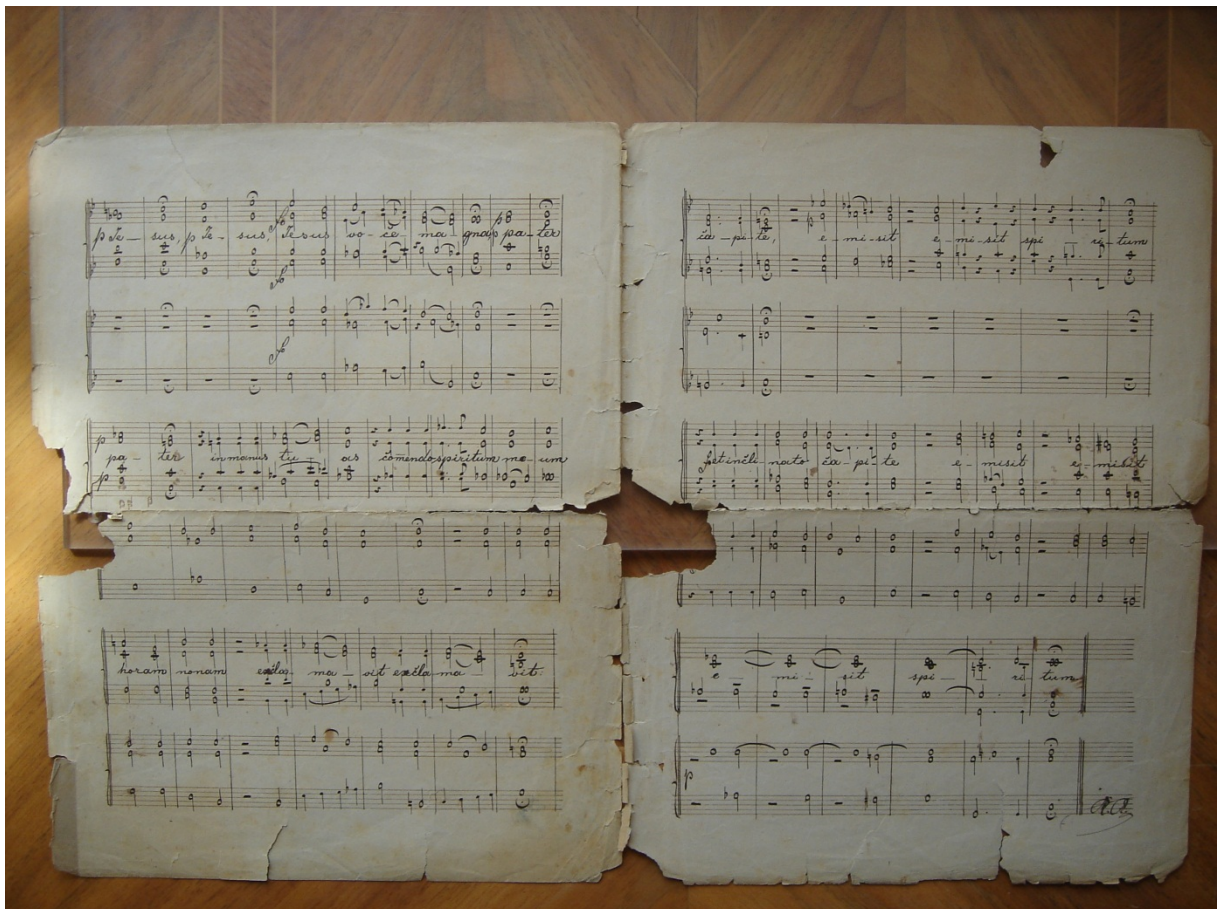 p Je-sus, p Je-sus, Jesus vo-ce ma-gna, p pa-ter
p pa-ter in manus tu-as comendo spiritum me-um
p
horam nonam excla-ma-vit excla-ma-vit:
ca-pi-te, e-mi-sit e-mi-sit spi-ri-tum
p
et incli-nato ca-pi-te e-misit e-misit
e-mi-sit spi-ri-tum
p